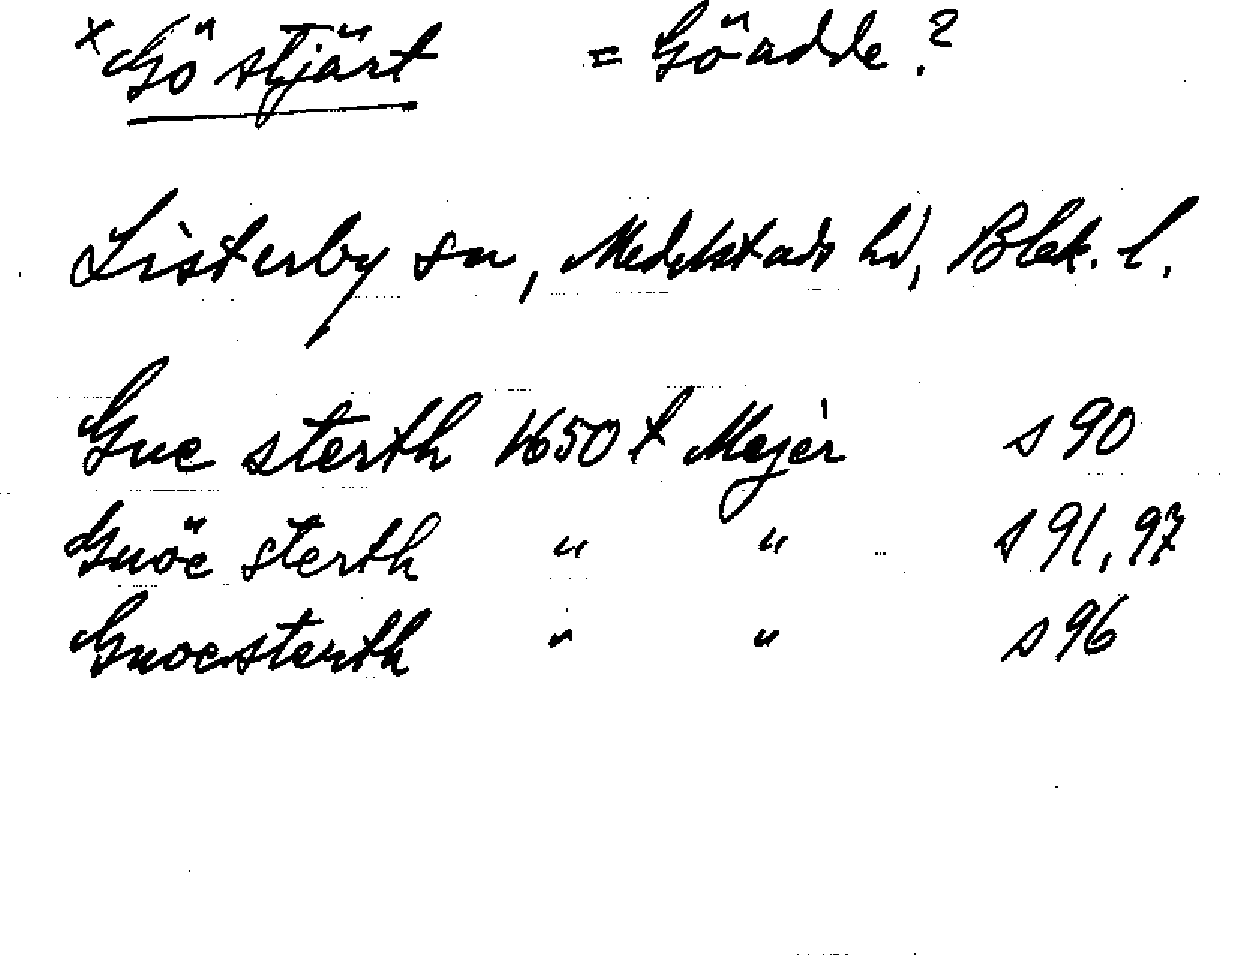 x Göstjärt = Göudde.?
Listerby sn, Medelstads hd, Blek. l.
Gue sterth 1650 t Mejer s 90
Guöe sterth " " s 91, 97
Guoesterth " " s 96